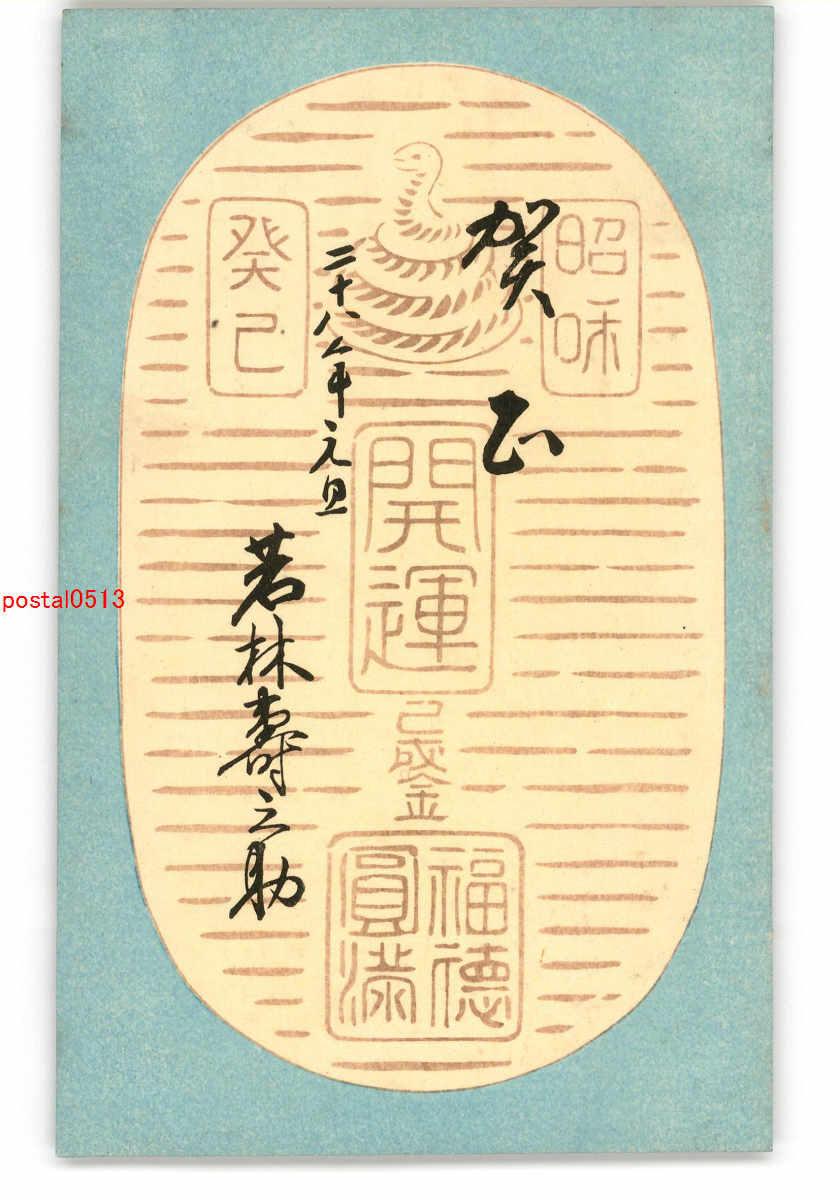 昭和
賀正
癸巳
二十八年元旦
若林壽之助
開運
巳成金
福德
圓満
postal0513